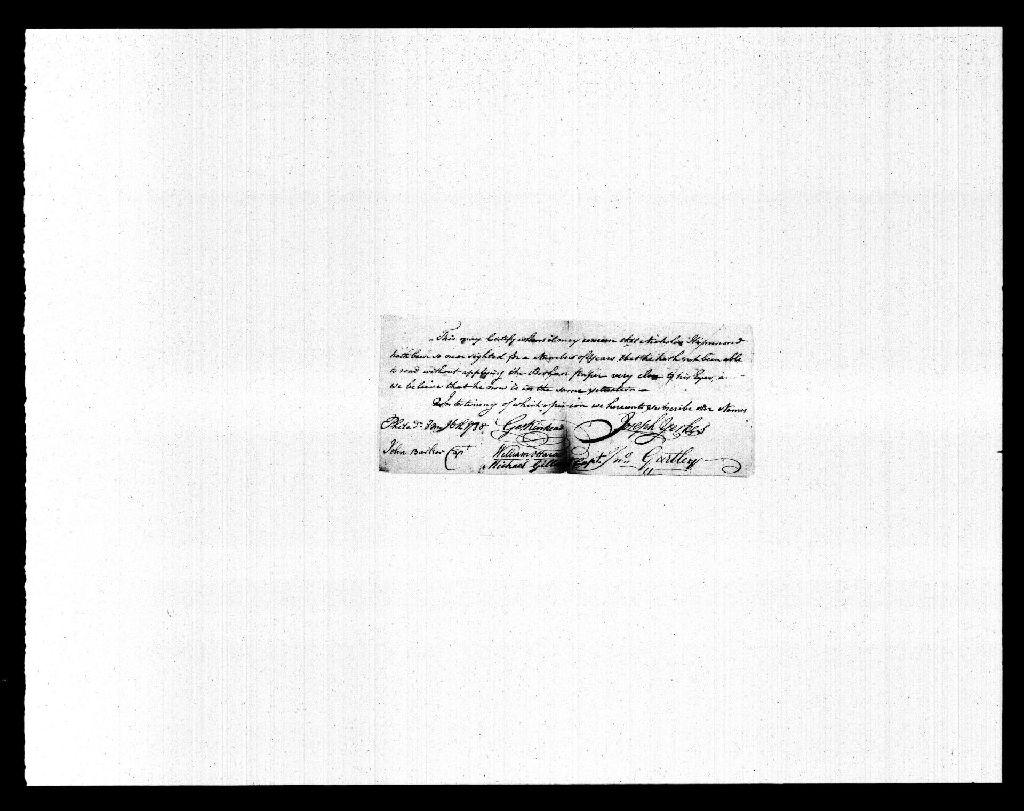 This may Certify whom it may concern that Nicholas
hath been so near sighted for a Number of Years that he has not been able
to read without applying the Book or paper very close to his Eyes, &
we believe that he now is in the same situation
In testimony of which opinion we hereunto subscribe our Names
Philada. Jany 16th 1798. Joseph
John Barker Capt William Michael Capt. Jno. Gartley